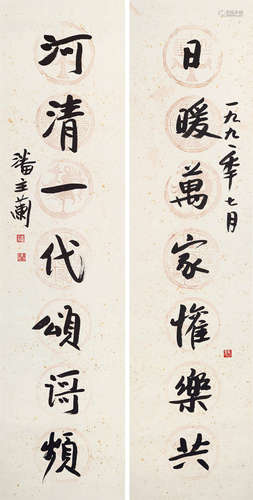 日暖萬家懽樂共
一九九一年七月
河清一代頌謌頻
潘主蘭